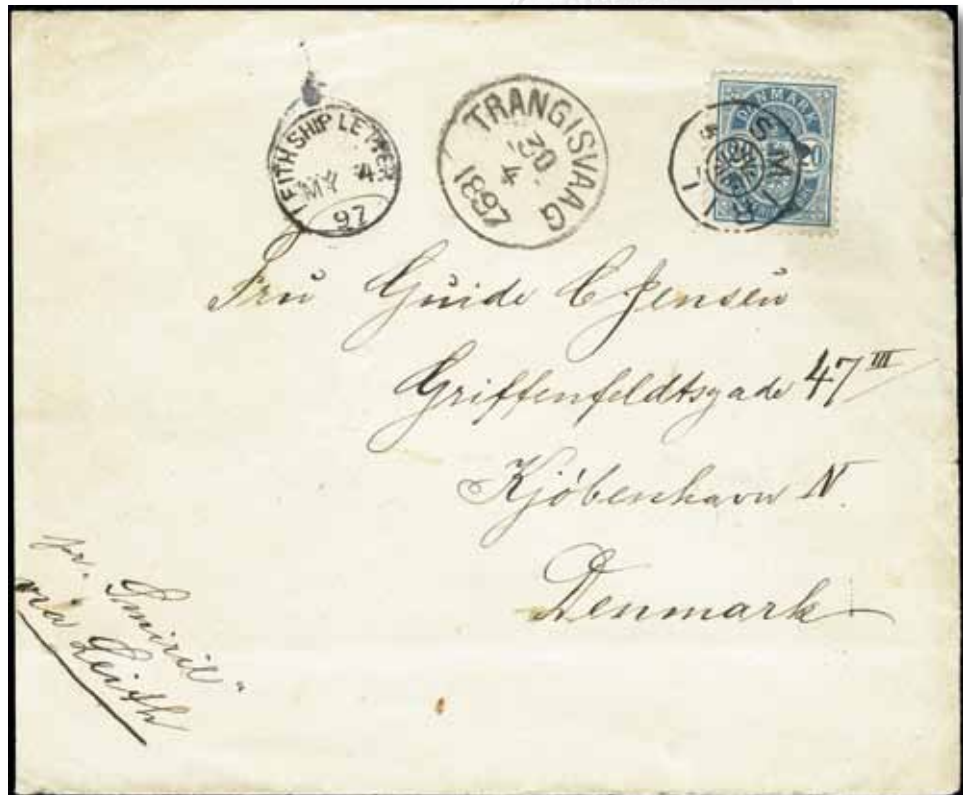 LEITH SHIP LETTER
MY 4
97
TRANGISVAAG
30.
4
1897
DANMARK
20
SMIRIL
Fru Guide C Jensen
Griffenfeldtsgade 47 III
Kjöbenhavn N.
Denmark
pr. "Smiril"
via Leith